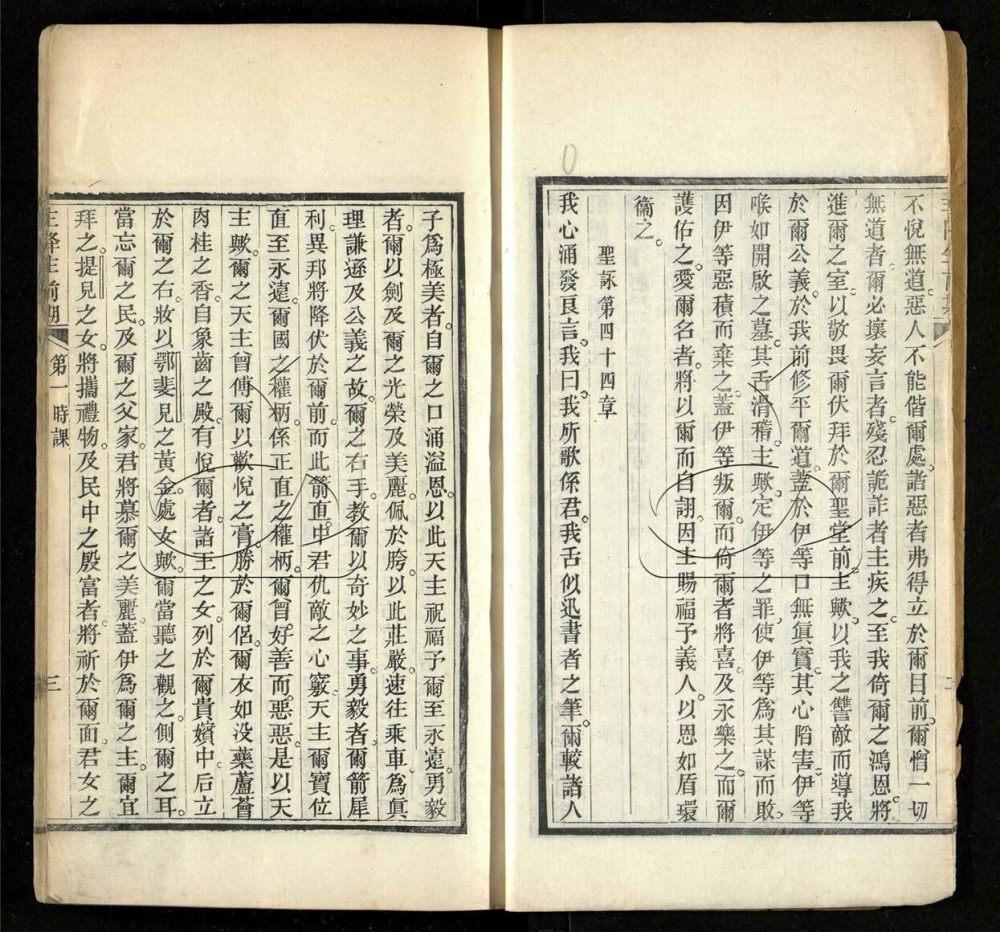 不悅無道。惡人不能偕爾處。諸惡者弗得立於爾目前。爾憎一切
無道者。爾必壞妄言者。殘忍詭詐者主疾之。至我倚爾之鴻恩將
進爾之室。以敬畏爾伏拜於爾聖堂前。主歟。以我之讐敵而導我
於爾公義。於我前修平爾道。蓋於伊等口無眞實。其心陷害。伊等
喉如開啟之墓。其舌滑稽。主歟。定伊等之罪。使伊等爲其謀而敗。
因伊等惡積而棄之。蓋伊等叛爾。而倚爾者將喜。及永樂之。而爾
護佑之。愛爾名者。將以爾而自詡。因主賜福予義人。以恩如盾環
衞之。
聖詠第四十四章
我心涌發良言。我曰。我所歌係君。我舌似迅書者之筆。爾較諸人
子爲極美者。自爾之口涌溢恩。以此天主祝福予爾至永遠。勇毅
者。爾以劍及爾之光榮及美麗。佩於胯。以此莊嚴。速往乘車。爲眞
理謙遜及公義之故。爾之右手。教爾以奇妙之事。勇毅者。爾箭犀
利。異邦將降伏於爾前。而此箭直中君仇敵之心竅。天主爾寶位
直至永遠。爾國之權柄。係正直之權柄。爾曾好善而。惡惡。是以天
主歟。爾之天主曾傅爾以歡悅之膏勝於爾侶。爾衣如没藥蘆薈
肉桂之香。自象齒之殿。有悅爾者。諸王之女。列於爾貴嬪中。后立
於爾之右。妝以鄂斐兒之黃金。處女歟。爾當聽之觀之。側爾之耳。
當忘爾之民。及爾之父家。君將慕爾之美麗。蓋伊爲爾之主。爾宜
拜之。提兒之女。將攜禮物。及民中之殷富者。將祈於爾面。君女之
主降生前期 第一時課 三